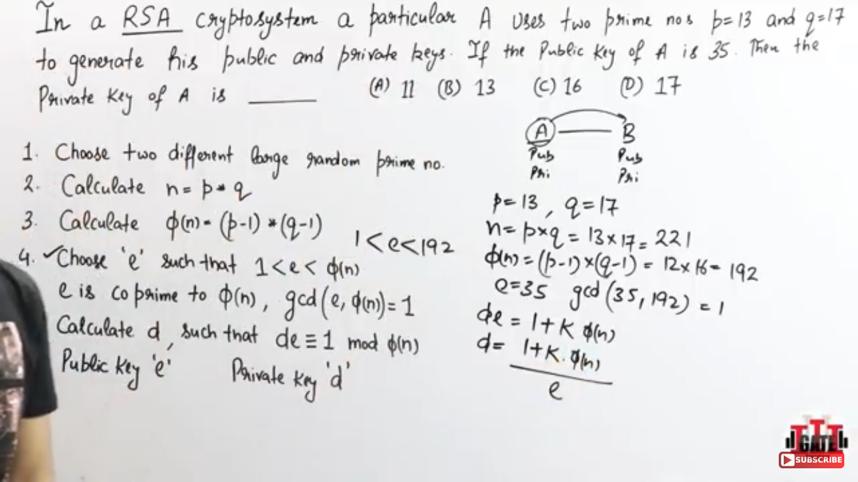 In a RSA cryptosystem a particular A uses two prime nos p=13 and q=17
to generate his public and private keys. If the Public Key of A is 35. Then the
Private Key of A is ______ (A) 11 (B) 13 (C) 16 (D) 17
1. Choose two different large random prime no.
2. Calculate n = p * q
3. Calculate ϕ(n) = (p-1) * (q-1)
1<e<192
4. ✓Choose 'e' such that 1<e<ϕ(n)
e is co prime to ϕ(n), gcd(e, ϕ(n))=1
Calculate d, such that de ≡ 1 mod ϕ(n)
Public Key 'e' Private Key 'd'
A B
Pub Pub
Pri Pri
p=13, q=17
n=p×q=13×17=221
ϕ(n)=(p-1)×(q-1)=12×16=192
e=35 gcd(35,192)=1
de = 1+K ϕ(n)
d= 1+K.ϕ(n)
e
GATE
SUBSCRIBE